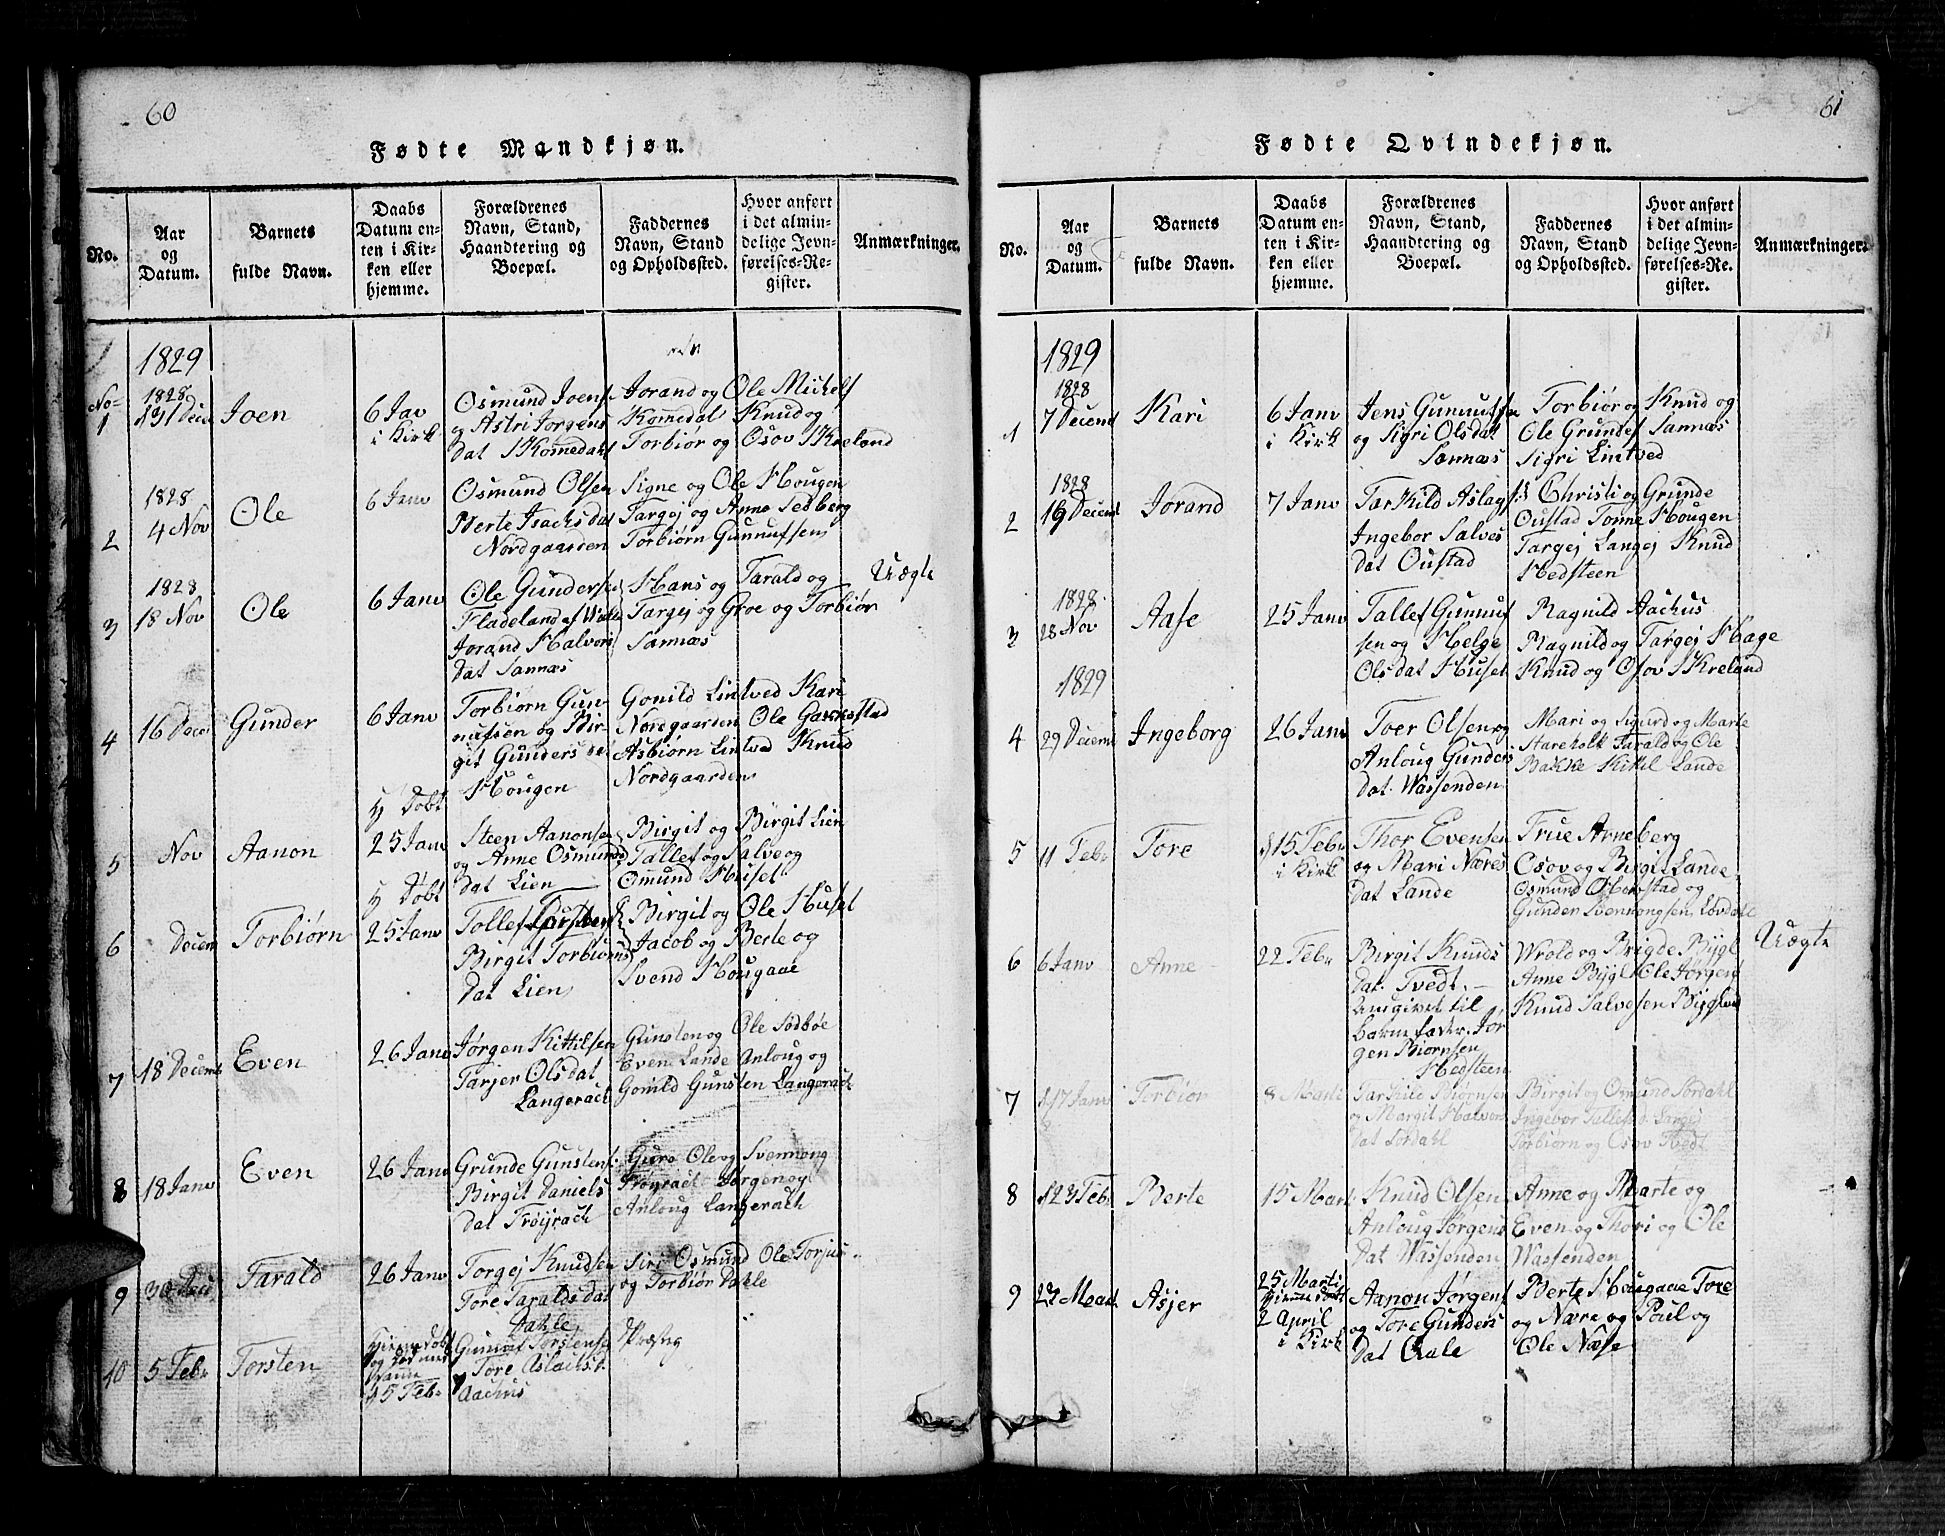 60
Fødte Mandkjøn.
No.
Aar
og
Datum.
Barnets
fulde Navn.
Daabs
Datum en-
ten i Kir-
ken eller
hjemme.
Forældrenes
Navn, Stand,
Haandtering og
Boepæl.
Faddernes
Navn, Stand
og Opholdssted.
Hvor anført
i det almin-
delige Jevn-
førelses-Re-
gister.
Anmærkninger.
1829
No-
1
1828
Decm
Joen
6 Jav
i Kirk
Osmund Joens
og Astri Jorgens
Dat Komedahl
Jorand og Ole Michels
Komedal Knud og
Torbiør og Osov Kreland
2
1828
4 Nov
Ole
6 Janv
Osmund Olsen
Berte Isachsdat
Nordgaarden
Signe og Ole Hougen
Targej og Anne Tedberg
Torbiørn Gunnufsens
3
1828
18 Nov
Ole
6 Janv
Ole Gundersen
Fladeland af
Jorand Halvors
Dat Sannæs
Hans og Tarald og
Targej og Groe og Torbiør
Sannæs
Uægte
4
16 Decm
Gunder
6 Janv
Torbiørn Gun
nufsen og Bir-
git Gunders dat
Hougen
Gonild Lintved Kari
Nordgaarden Ole
Asbiørn Lintved Knud
Nordgaarden
5
Nov
Aanon
Døbt
25 Janv
Steen Aanonsen
og Anne Osmunds
Dat Lien
Birgit og Birgit Lien
Tallef og Salve og
Omund Huset
6
Decem
Torbiørn
Døbt
25 Janv
Tollef
Birgit Torbiørns
Dat Lien
Birgit og Ole Huset
Jacob og Berte og
Svend Hougaae
7
18 Decemb
Even
26 Janv
Jørgen Kittilsen
Tarjer Olsdat
Langerach
Gunsten og Ole Sødbøe
Even Lande Anloug og
Gonild Gunsten Langerach
8
18 Janv
Even
26 Janv
Grunde Gunstens
Birgit Daniels
Dat Frøyrach
Guro Ole og Svennong
Frøyrach Jørgen og
Anloug Langerach
9
30
Tarald
26 Janv
Torgej Knudsen
Tore Taraldsdat
Dahle
Siri Osmund Ole Torjus
og Torbiør Dahle
10
5 Feb
Torsten
Hjemme Døbt
5 Feb
Gunuf Torstensen
Tore Aslachs
Aachus
61
Fødte Qvindekjøn.
No.
Aar
og
Datum.
Barnets
fulde Navn.
Daabs
Datum en-
ten i Kir-
ken eller
hjemme.
Forældrenes
Navn, Stand,
Haandtering og
Boepæl.
Faddernes
Navn, Stand
og Opholdssted.
Hvor anført
i det almin-
delige Jevn-
førelses-Re-
gister.
Anmærkninger.
1829
1
1828
7 Decemb
Kari
6 Janv
i Kirk
Jens Gunnufsen
og Sigri Olsdat
Sannæs
Torbiør og Knud og
Ole Grundes Sannæs
Sigri Lintved
2
1828
16 Decemb
Jorand
7 Janv
Tarkild Aslags
Ingebor Salves
Dat Oustad
Christi og Grunde
Oustad Tonne Hougen
Targej Langej Knud
Hedsteen
3
1828
28 Nov
Aase
25 Janv
Tallef Gunnuf
sen og Helge
Olsdat Huset
Ragnild Aachus
Ragnild og Targej Hage
Knud og Osov Kreland
1829
4
29 Decemb
Ingeborg
26 Janv
Toer Olsen og
Anloug Gunders
Dat. Wassenden
Mari og Sigurd og Marte
Stareholt Tarald og Ole
Bakke Kittil Lande
5
11 Feb
Tore
15 Feb
i Kirk
Thor Evensen
og Mari Næres
Dat Lande
True Arneberg
Osov og Birgit Lande
Osmund og
Gunder Svennongsen Løvdahl
6
6 Janv
Anne
22 Feb
Birgit Knuds
Dat. Tvedt.
Angivet til
barnefader Jør
gen Biørnsen
Hedsteen
Wrold og Brigde Bygl
Anne Bygl Ole Jørgen
Knud Salvesen Bygland
Uægte
7
17 Janv
Torbiør
8 Marti
Tarkild Biørnsen
og Margit Halvors
Dat Sordahl
Birgit og Omund Sordahl
Ingebor
Torbiørn og Osov
8
23 Feb
Berte
15 Mart
Knud Olsen
Anloug Jørgens
Dat Wassenden
Anne og Marte og
Even og Thori og Ole
Wassenden
9
Mart
Asjer
25 Marti
Hjemme døbt
2 April
i Kirk
Aanon Jørgens
og Tore Gunders
Dat
Berte Hougaae Tore
og Nære og Poul og
Ole Næse